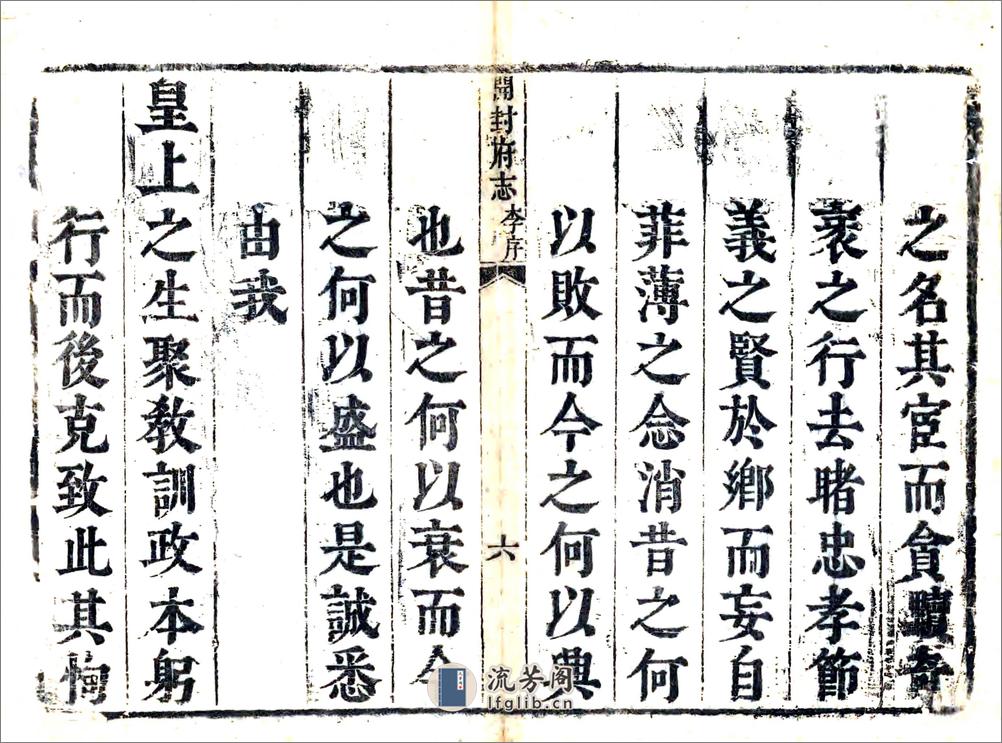 之名其宦而貪黷奇
袤之行去睹忠孝節
義之賢於鄉而妄自
菲薄之念消昔之何
以敗而今之何以典
開封府志 李序 六
也昔之何以衰而今
之何以盛也是誠悉
由我
皇上之生聚教訓政本躬
行而後克致此其
流芳阁
lfglib.cn